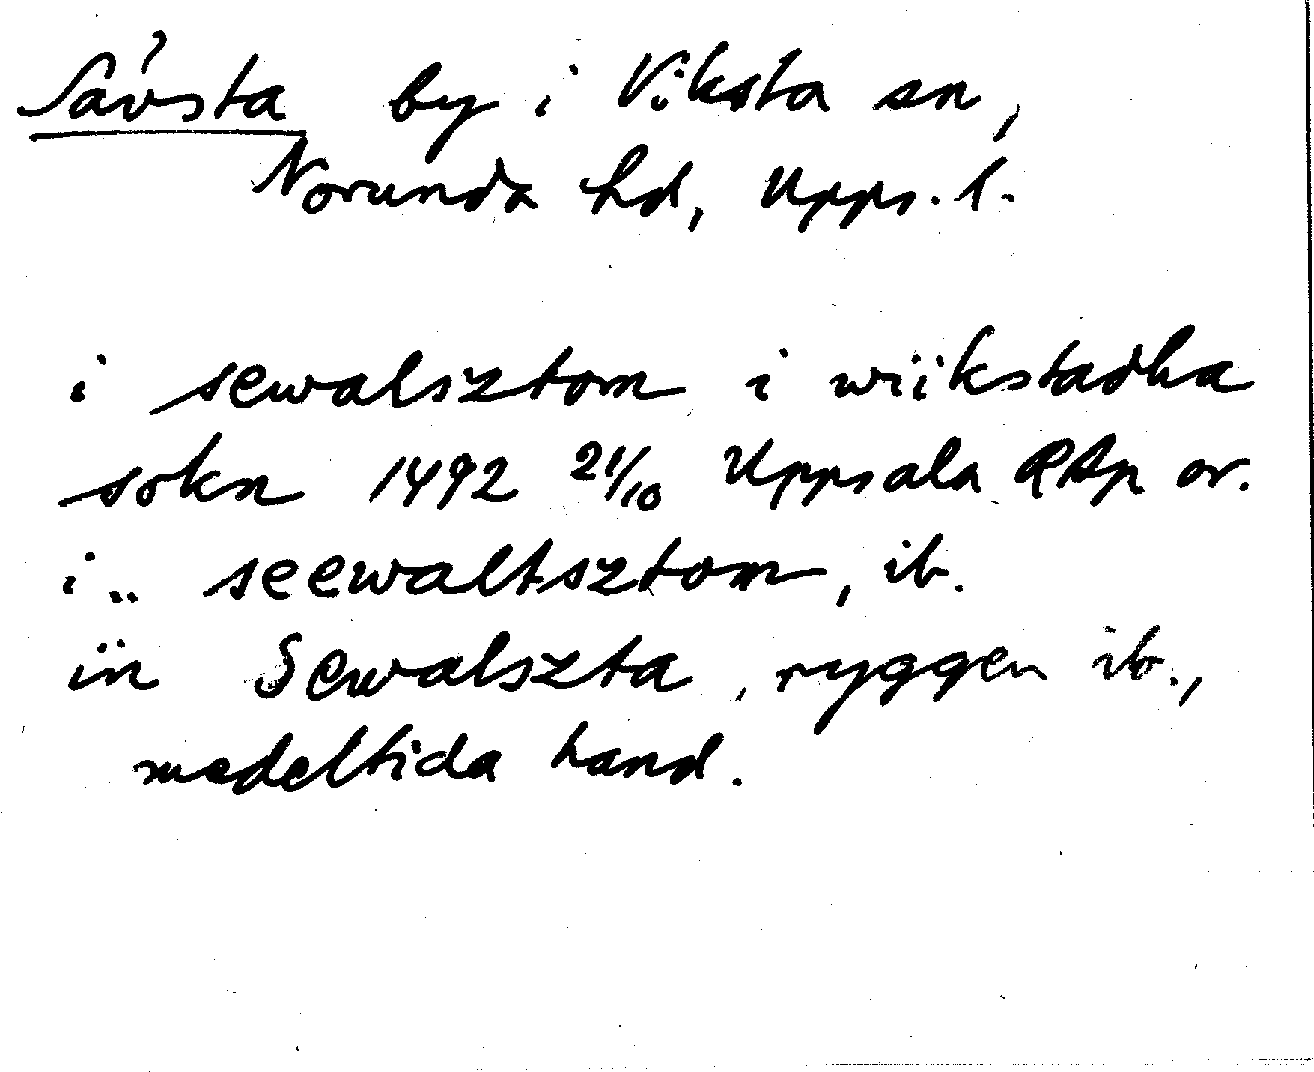 Sävsta by i Viksta sn,
Norunda hd, Upps. l.
i sewalsztom i wiikstadha
sokn 1492 21/10 Uppsala RAp or.
i .. seewaltsztom, ib.
iin Sewalszta, ryggen ib.,
medeltida hand.